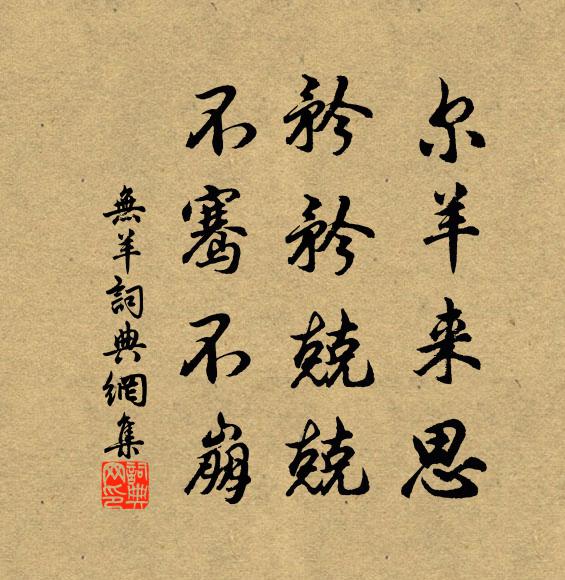 尔羊来思
矜矜兢兢
不骞不崩
無羊詞典網集
詞典
网印